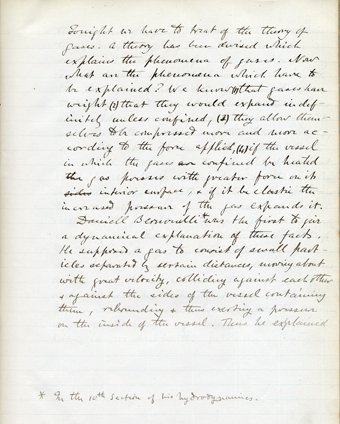 Tonight we have to treat of the theory of
gases. A theory has been devised which
explains the phenomena of gases. Now
what are the phenomena which have to
be explained? We know (1) that gases have
weight (2) that they would expand indef-
initely unless confined, (3) they allow them-
selves to be compressed more and more ac-
cording to the force applied, (4) if the vessel
in which the gases are confined be heated
the gas presses with greater force on its
sides interior surface, & if it be elastic the
increased pressure of the gas expands it.
Daniell Bernouilli * was the first to give
a dynamical explanation of these facts.
He supposed a gas to consist of small part-
icles separated by certain distances, moving about
with great velocity, colliding against each other
& against the sides of the vessel containing
them, rebounding & thus exerting a pressure
on the inside of the vessel. Thus he explained
* In the 10th section of his hydrodynamics.